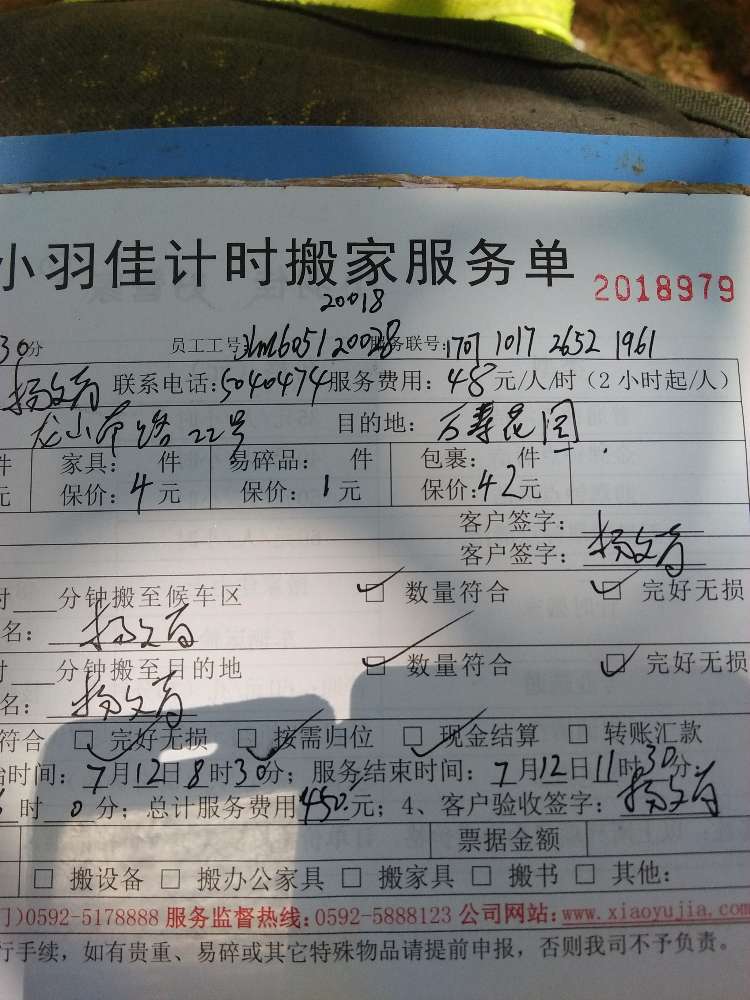 小羽佳计时搬家服务单 2018979
20018
30分 员工工号: 服务联号:1707 1017 2652 1961
联系电话:5040474 服务费用:48元/人/时(2小时起/人)
路22号 目的地:万寿花园
件 家具: 件 易碎品: 件 包裹: 件
元 保价:4元 保价:1元 保价:42元
客户签字:
客户签字:杨文育
时 分钟搬至候车区 ☑ 数量符合 ☑ 完好无损
名:杨文育
时 分钟搬至目的地 ☑ 数量符合 ☑ 完好无损
名:杨文育
符合 ☑ 完好无损 ☑ 按需归位 ☑ 现金结算 □ 转账汇款
始时间:7月12日8时30分;服务结束时间:7月12日11时30分;
时0分;总计服务费用450元;4、客户验收签字:杨文育
票据金额
□ 搬设备 □ 搬办公家具 □ 搬家具 □ 搬书 □ 其他:
门)0592-5178888 服务监督热线:0592-5888123 公司网站:www.xiaoyujia.com
行手续,如有贵重、易碎或其它特殊物品请提前申报,否则我司不予负责。